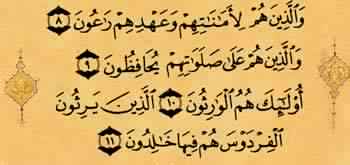 وَالَّذِينَ هُمْ لِأَمَانَاتِهِمْ وَعَهْدِهِمْ رَاعُونَ ٨
وَالَّذِينَ هُمْ عَلَى صَلَوَاتِهِمْ يُحَافِظُونَ ٩
أُوْلَئِكَ هُمُ الْوَارِثُونَ ١٠ الَّذِينَ يَرِثُونَ
الْفِرْدَوْسَ هُمْ فِيهَا خَالِدُونَ ١١